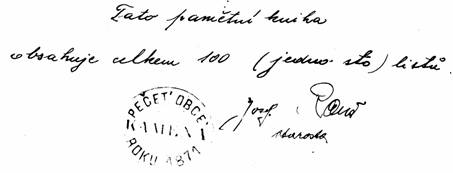 Tato pamětní kniha
obsahuje celkem 100 (jedno sto) listů.
PEČEŤ OBCE
KAMENÁ
ROKU 1871
Josef
starosta